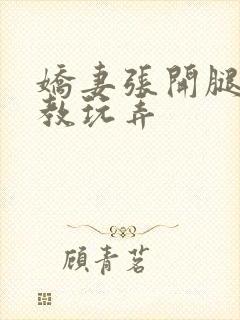 嬌妻張開腿
教玩弄
顧青茗